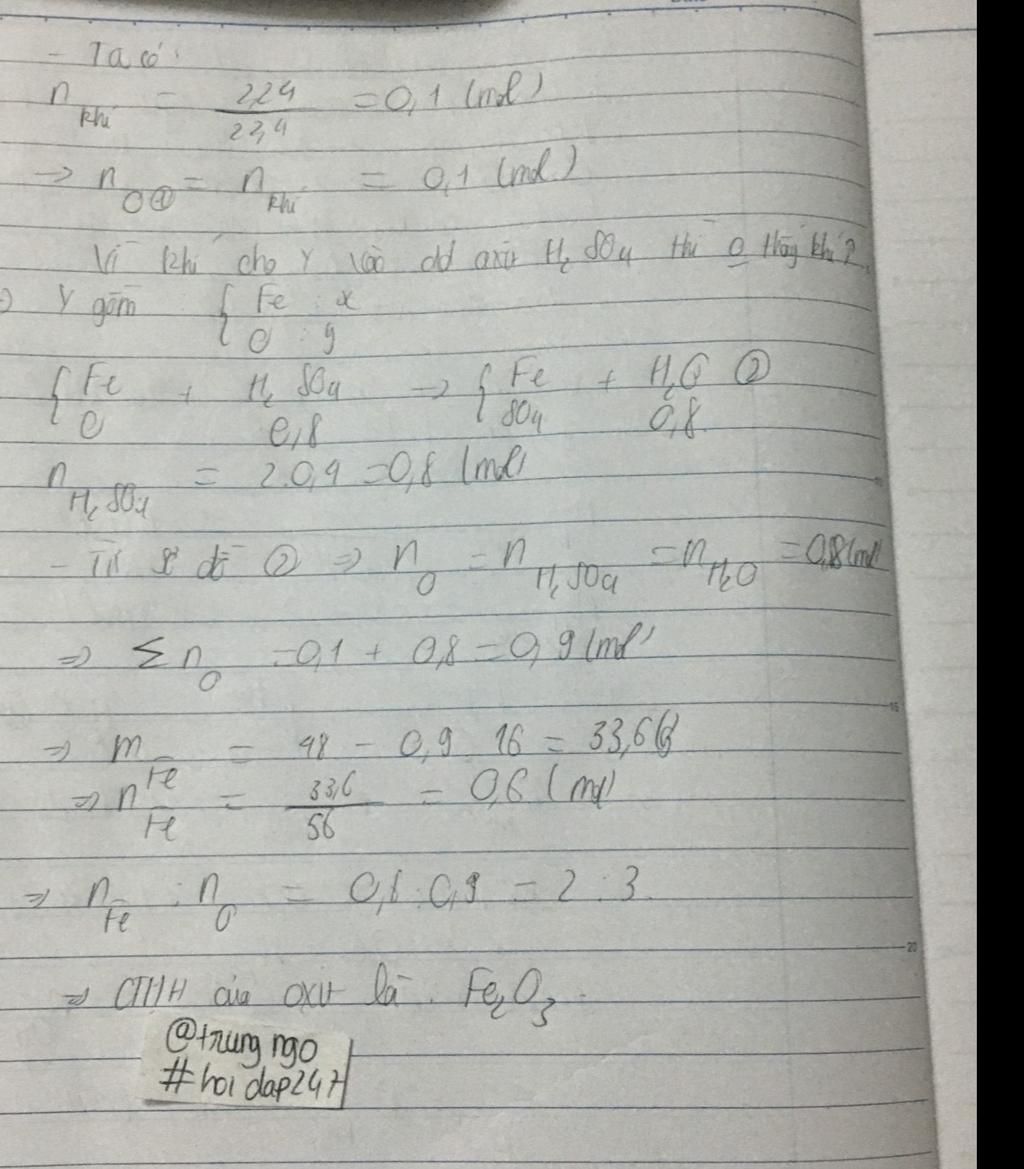 - Ta có:
n khí = 2,24 / 22,4 = 0,1 (mol)
→ n O① = n khí = 0,1 (mol)
Vì khi cho Y vào dd axit H2SO4 thì o thấy khí?
⇒ Y gồm { Fe : x
O : y
{ Fe O + H2SO4 → { Fe SO4 + H2O ②
0,8 0,8
n H2SO4 = 2.0,4 = 0,8 (mol)
- Từ sơ đồ ② ⇒ n O = n H2SO4 = n H2O = 0,8 (mol)
⇒ Σ n O = 0,1 + 0,8 = 0,9 (mol)
⇒ m Fe = 48 - 0,9 16 = 33,6 (g)
⇒ n Fe = 33,6 / 56 = 0,6 (mol)
⇒ n Fe : n O = 0,6 : 0,9 = 2 : 3.
⇒ CTHH của oxit là : Fe2O3.
@trung ngo
#hoi dap247